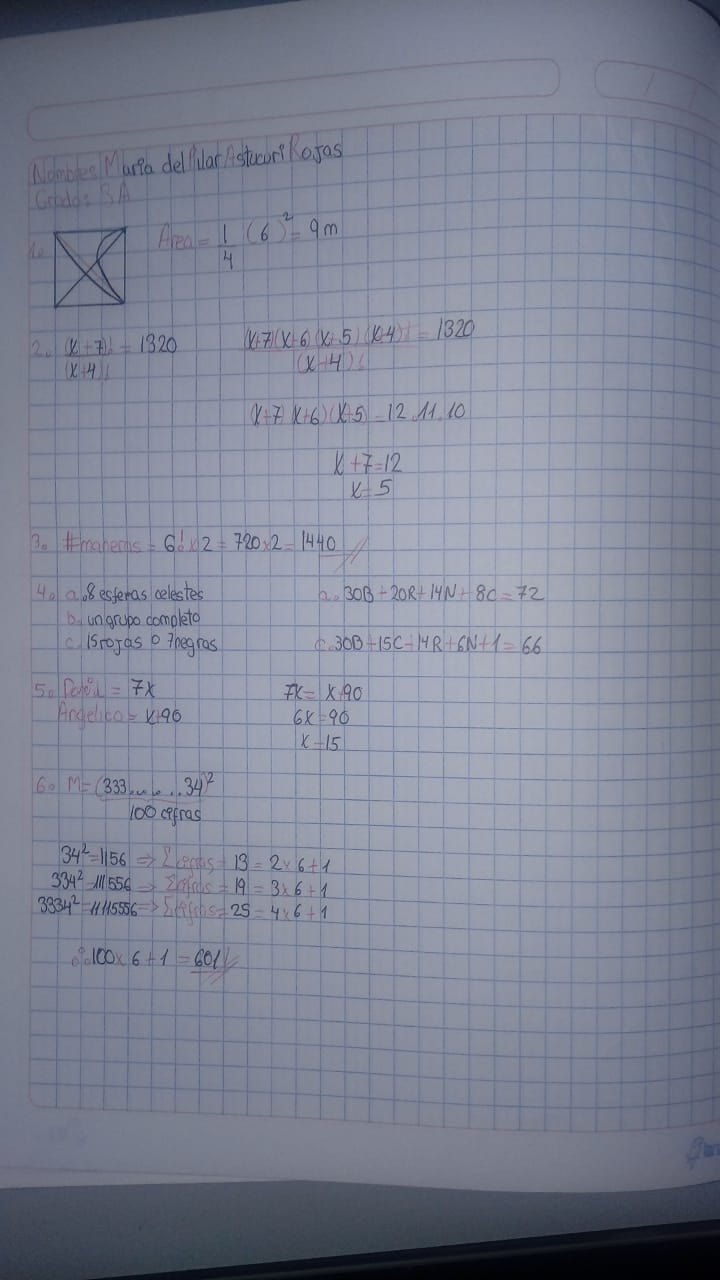 Nombres Maria del Pilar Astucuri Rojas
Grado: 3A
1. Area = 1/4 (6)² = 9m
2. (x+7)! / (x+4)! = 1320 (x+7)(x+6)(x+5)(x+4)! / (x+4)! = 1320
(x+7)(x+6)(x+5) = 12.11.10
x+7=12
x=5
3. #maneras = 6! x 2 = 720x2 = 1440
4. a. 8 esferas celestes a. 30B+20R+14N+8C=72
b. un grupo completo
c. 15 rojas o 7 negras c. 30B+15C+14R+6N+1=66
5. = 7x 7x = x+90
Angelica = x+90 6x=90
x=15
6. M=(333......34)²
100 cifras
34²=1156 => Σcifras = 13 = 2x6+1
334²=111556 => Σcifras = 19 = 3x6+1
3334²=11115556 => Σcifras = 25 = 4x6+1
∴ 100x6+1 = 601